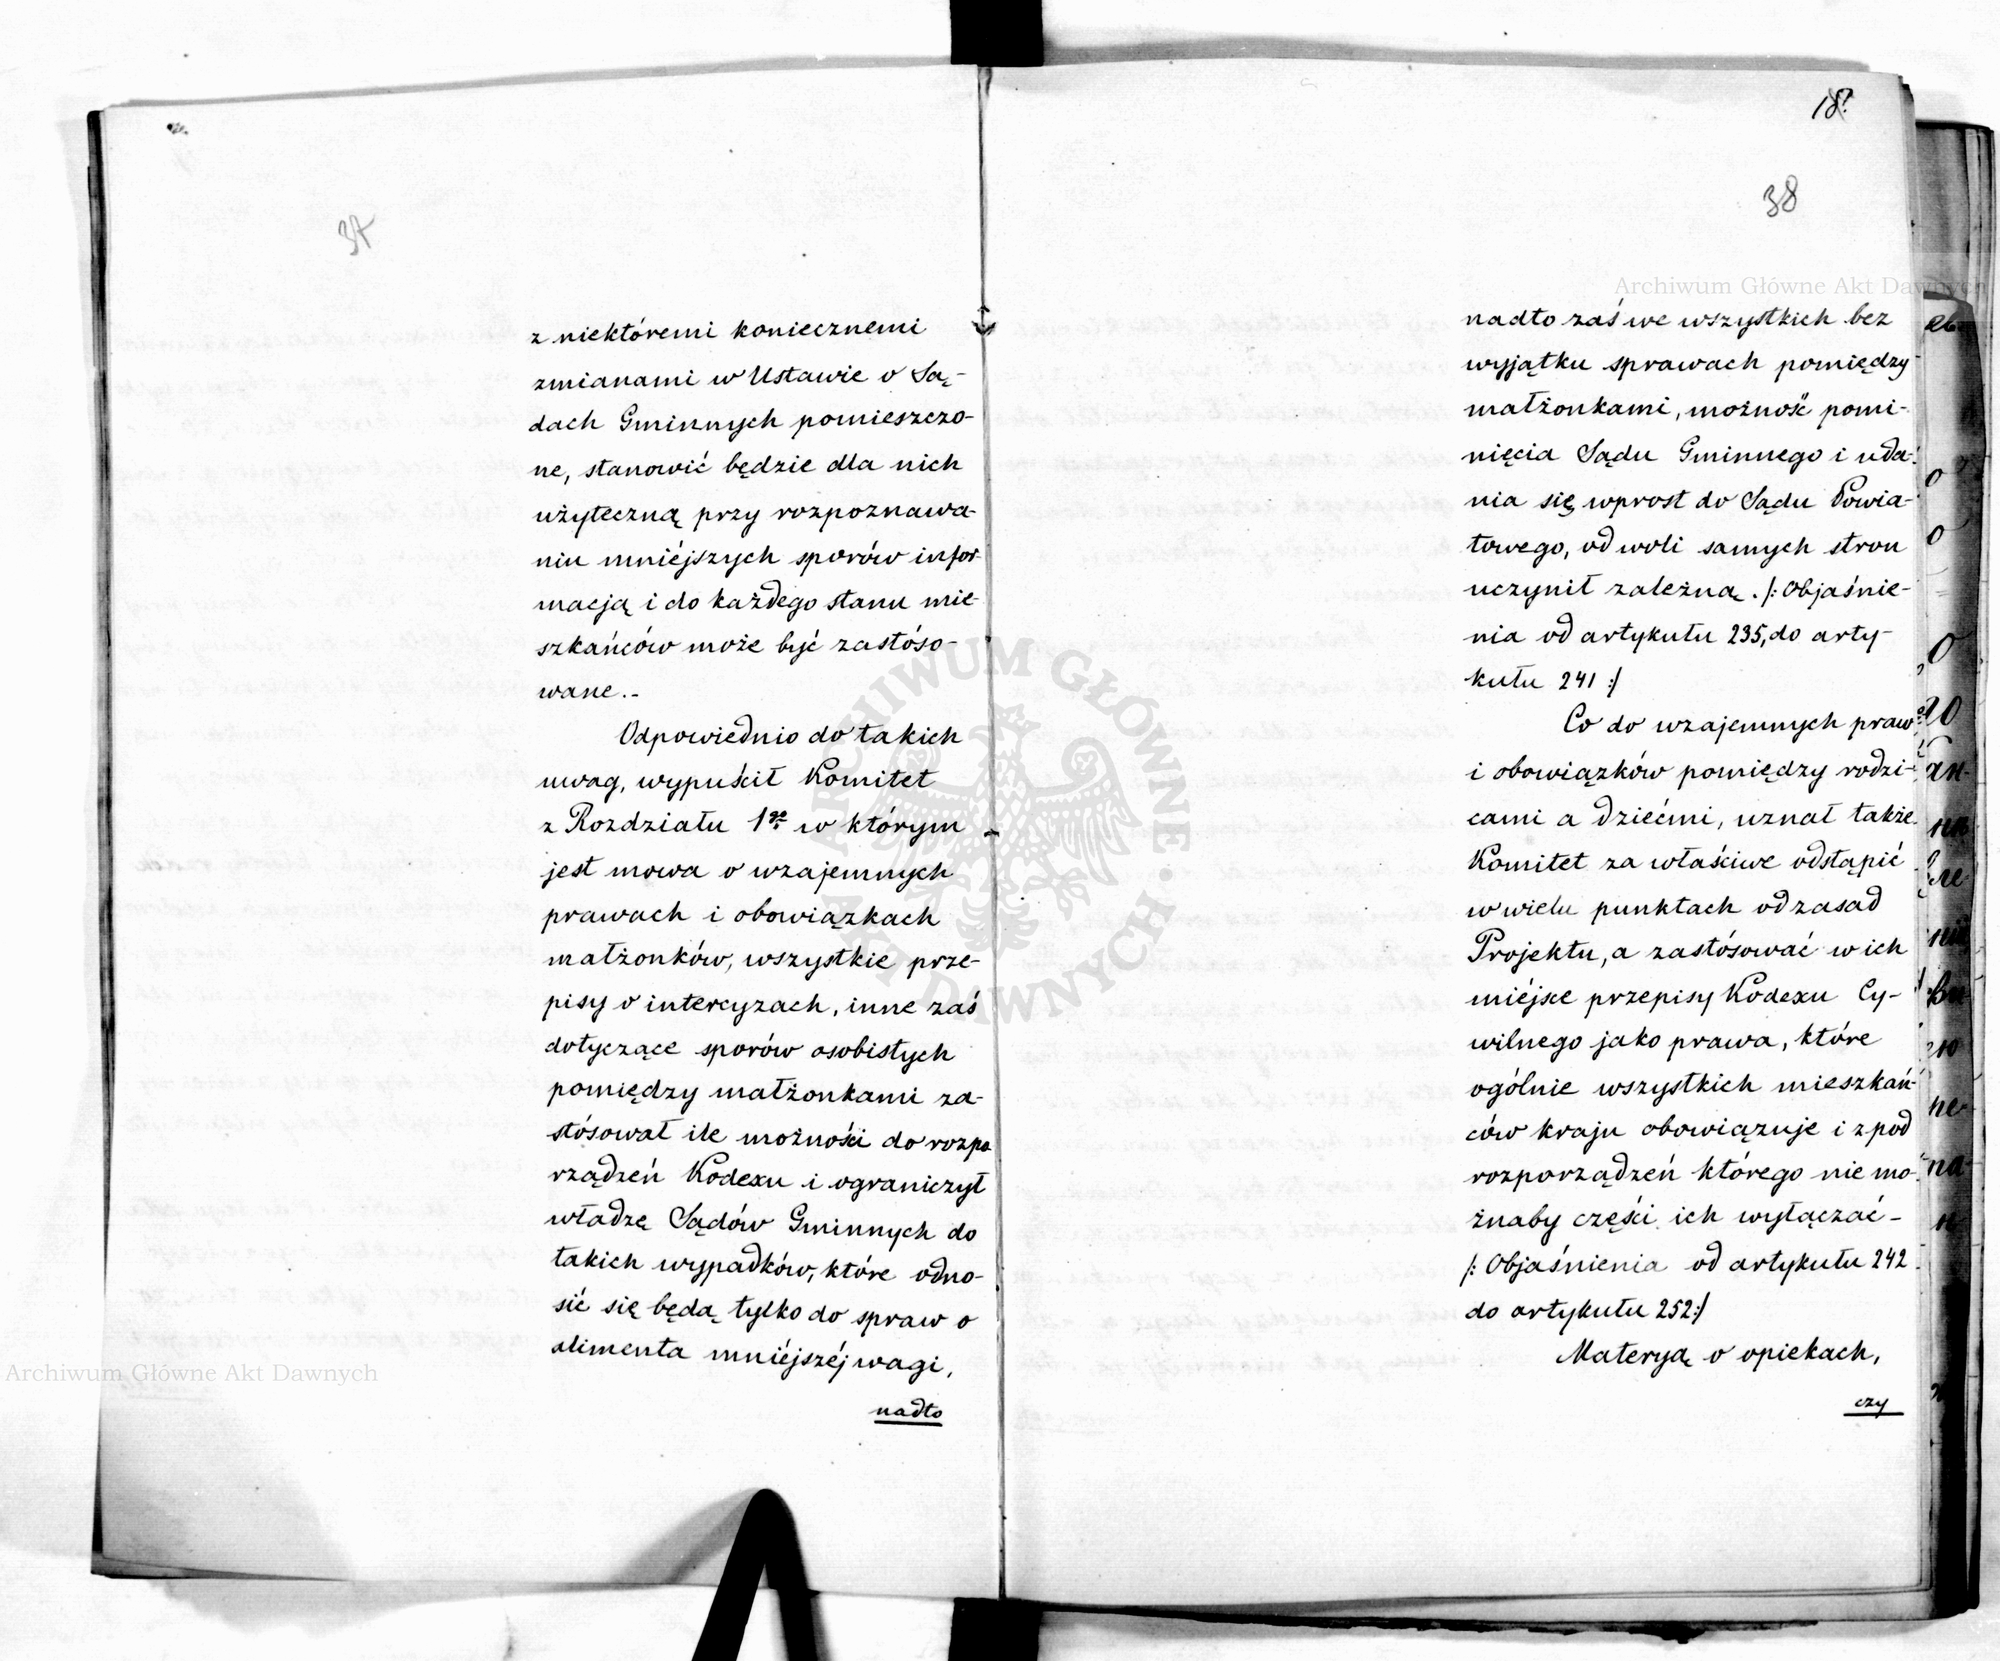 37
z niektóremi koniecznemi
zmianami w Ustawie o Są-
dach Gminnych pomieszczo-
ne, stanowić będzie dla nich
użyteczną przy rozpoznawa-
niu mniéjszych sporów infor
macją i do każdego stanu mie-
szkańców może być zastóso-
wane.-
Odpowiednio do takich
uwag, wypuścił Komitet
z Rozdziału 1go w którym
jest mowa o wzajemnych
prawach i obowiązkach
małżonków, wszystkie prze-
pisy o intercyzach, inne zaś
dotyczące sporów osobistych
pomiędzy małżonkami za-
stósował ile możności do rozpo
rządzeń Kodexu i ograniczył
władzę Sądów Gminnych do
takich wypadków, które odno-
sić się będą tylko do spraw o
alimenta mniéjszéj wagi,
nadto
38
nadto zaś we wszystkich bez
wyjątku sprawach pomiędzy
małżonkami, możność pomi-
nięcia Sądu Gminnego i uda-
nia się wprost do Sądu Powia-
towego, od woli samych stron
uczynił zależną. /: Objaśnie-
nia od artykułu 235, do arty-
kułu 241 :/
Co do wzajemnych praw
i obowiązków pomiędzy rodzi-
cami a dziećmi, uznał także
Komitet za właściwe odstąpić
w wielu punktach od zasad
Projektu, a zastósować w ich
miéjsce przepisy Kodexu Cy-
wilnego jako prawa, które
ogólnie wszystkich mieszkań-
ców kraju obowiązuje i z pod
rozporządzeń którego nie mo-
żnaby części ich wyłączać -
/: Objaśnienia od artykułu 242
do artykułu 252 :/
Materyą o opiekach,
czy
Archiwum Główne Akt Dawnych
Archiwum Główne Akt Dawnych
ARCHIWUM GŁÓWNE AKT DAWNYCH